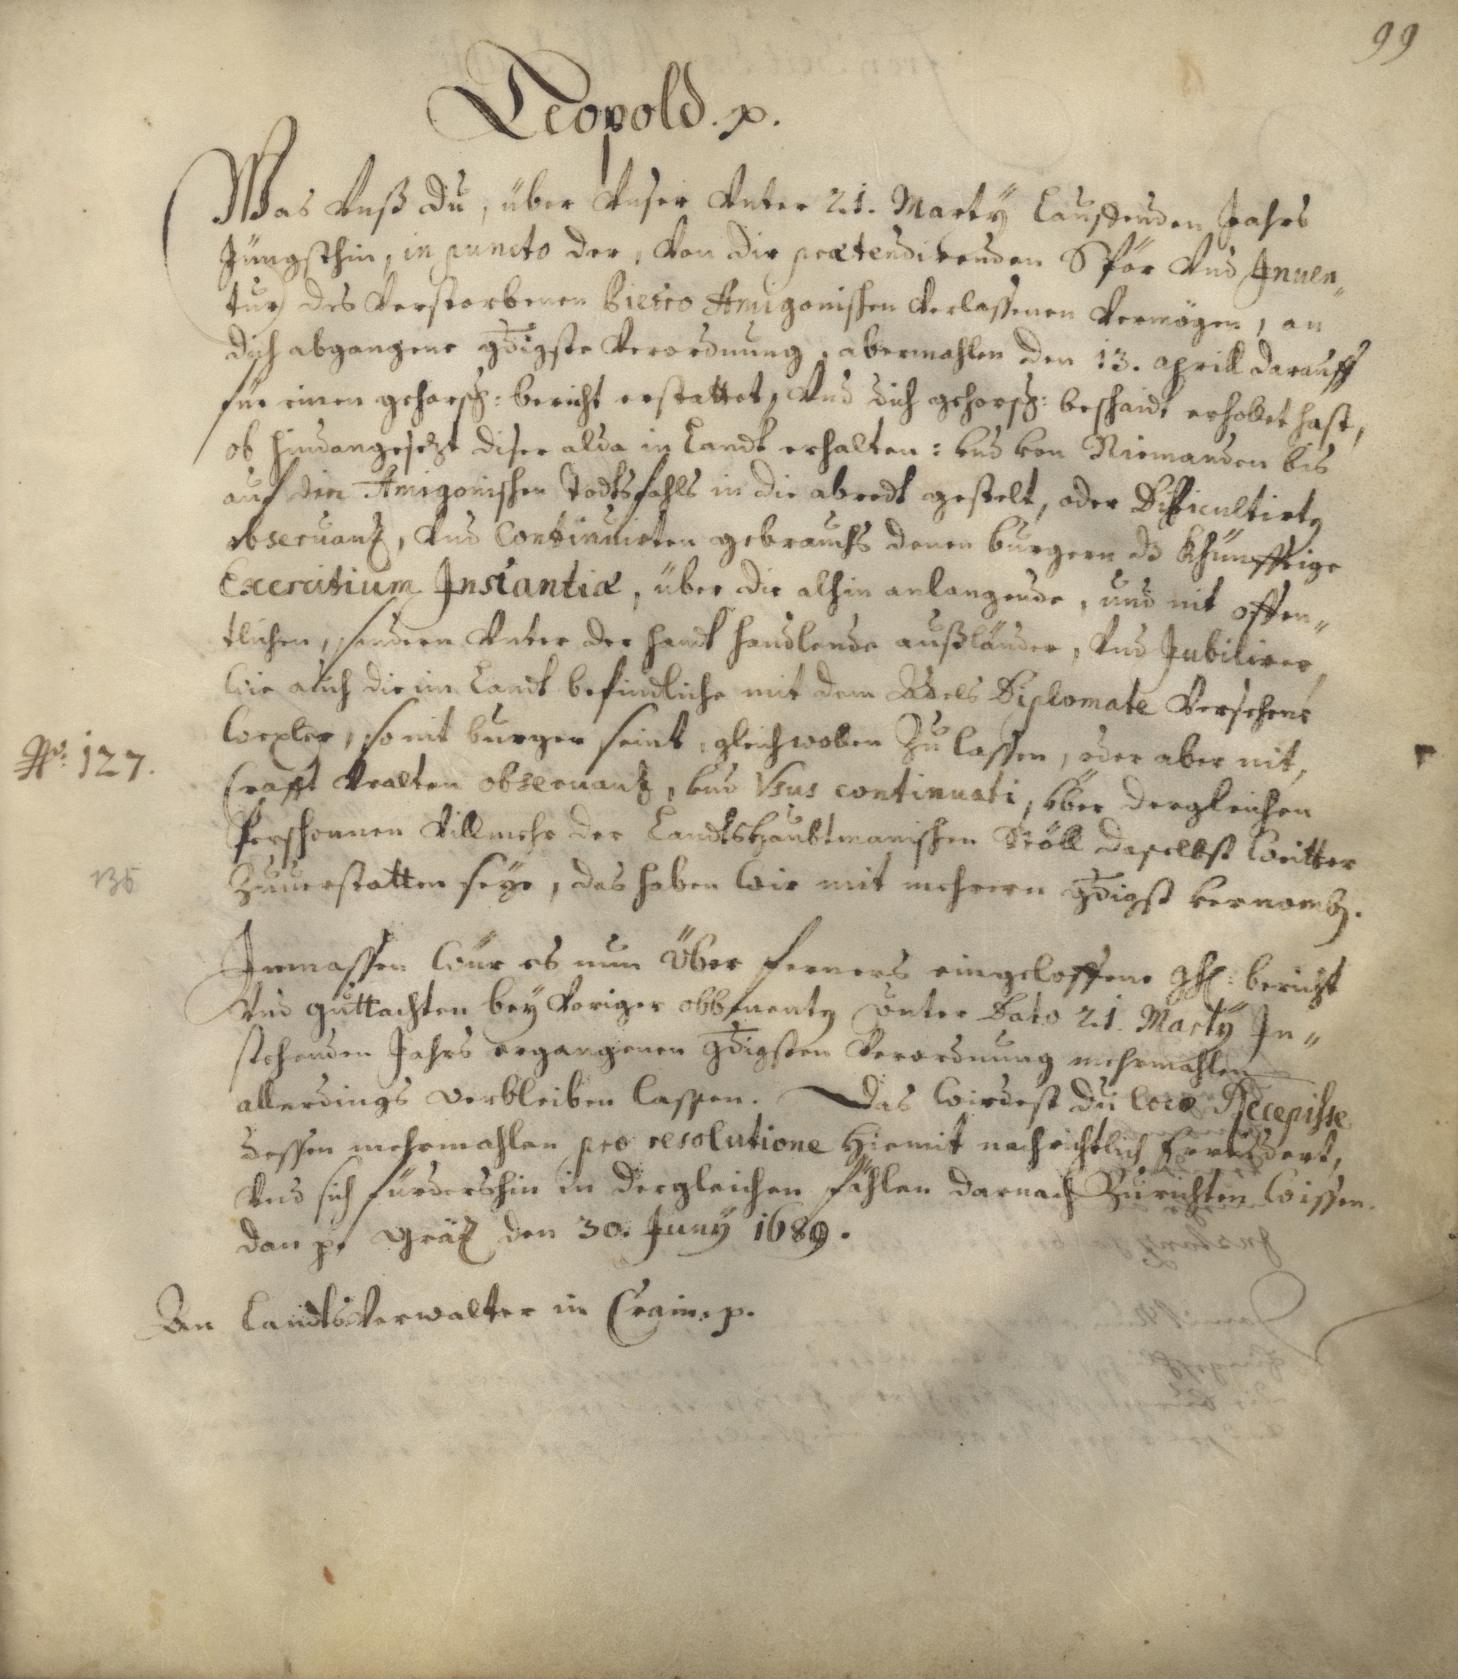 99
Leopold. p.
Was Vnß du, über Vnser Vnter 21. Marty Lauffenden Jahrs
Jüngsthin, in puncto der, Von dir prætendirenden Spör Vnd Inuen„
tur des Verstorbenen Pietro Amigonischen Verlassenen Vermögen, an
dich abgangene gdigste Verordnung, abermahlen den 13. aprill darauff
für einen gehorsb: bericht erstattet, Vnd dich gehorsb: beschaidt erhollet hast,
ob hindangesezt diser alda in Landt erhalten: vnd von Niemanden bis
auf den Amigonischen Todtsfahls in die abredt gestelt, oder Difficultirty
obseruanz, Vnd Continuirten gebrauchs denen burgern dz khünfftige
Exercitium Instantiæ, über die alhin anlangende, und nit offen„
tlichen, sondern Vnter der handt handlende außländer, Vnd Jubilirer,
wie auch die im Landt befindliche mit dem Adels Diplomate Versehene
wexler, so nit burger seint, gleichwolen Zu lassen, oder aber nit,
No: 127.
Crafft Vralten obseruanz, vnd Vsus continuati, über dergleichen
Persohnen Villmehr der Landtshaubtmanischen Stöll daselbst weitter
135
Zuuerstatten seye, das haben wir mit mehrern gdigst vernomb.
Inmassen wür es nun über ferners eingeloffene gh: bericht
Vnd guttachten bey Voriger unter Dato 21. Marty In„
stehenden Jahrs ergangenen gdigsten Verordnung mehrmahlen
allerdings verbleiben lassen. Das wirdest du loco Recepisse
dessen mehrmahlen pro resolutione hiemit nachrichtlich erindert,
Vnd sich fürdershin in dergleichen fählen darnach Zurichten wissen.
dan p. Gräz den 30. Juny 1689.
An Landts Verwalter in Crain. p.